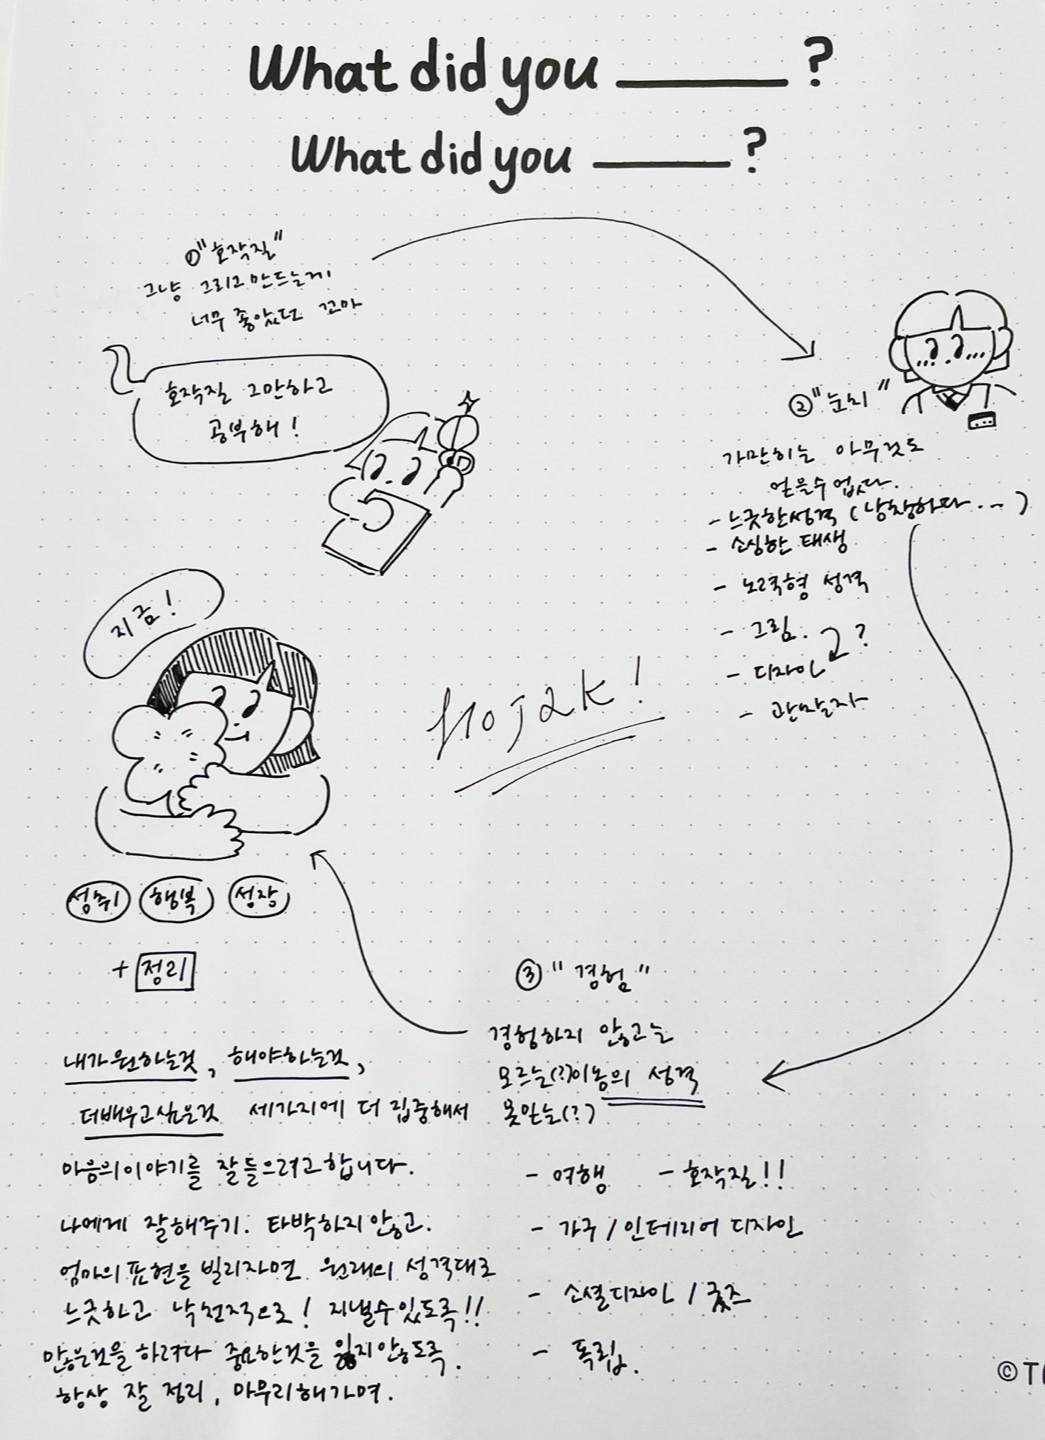 What did you ______?
What did you ______?
① "호작질"
그냥 그리고 만드는게
너무 좋았던 꼬마
호작질 그만하고
공부해!
② "눈치"
가만히는 아무것도
얻을수 없다.
- 느긋한성격 (낭창하다...)
- 소심한 태생
- 노력형 성격
- 그림.
?
- 디자인
- 관망자
지금!
Hojak!
성취 행복 성장
+ 정리
③ "경험"
경험하지 않고는
모르는(?)이놈의 성격
못믿는(?)
- 여행 - 호작질!!
- 가구 / 인테리어 디자인
- 소셜디자인 / 굿즈
- 독립.
내가원하는것, 해야하는것,
더배우고싶은것 세가지에 더 집중해서
마음의이야기를 잘들으려고합니다.
나에게 잘해주기. 타박하지않고.
엄마의표현을 빌리자면 원래의 성격대로
느긋하고 낙천적으로! 지낼수있도록!!
많은것을 하려다 중요한것을 잃지않도록.
항상 잘 정리, 마무리해가며.